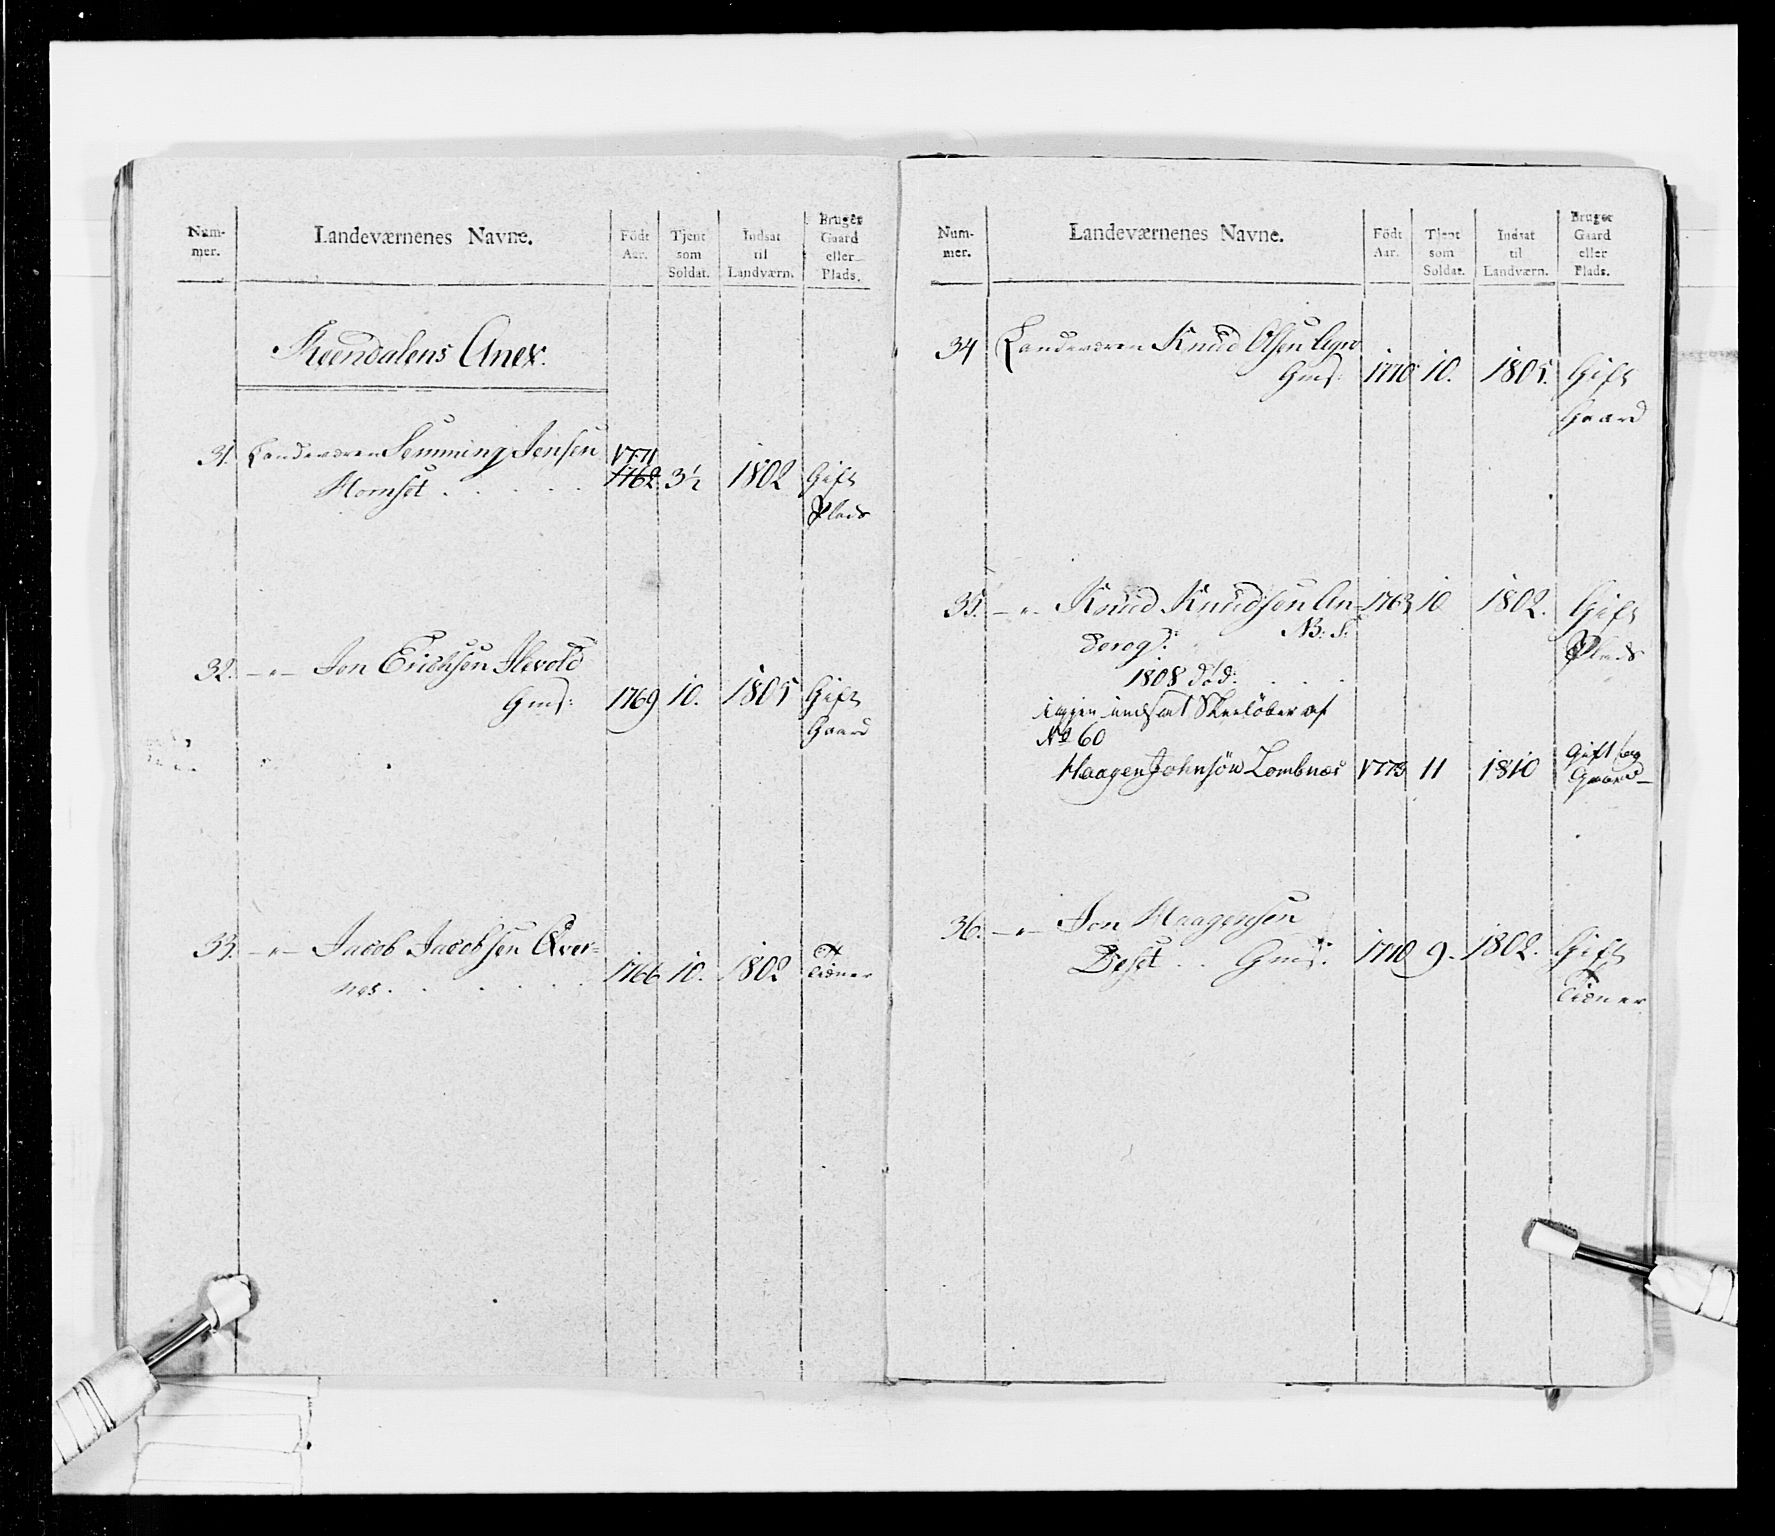 Num-
mer.
Landeværnenes Navne.
Födt
Aar.
Tjent
som
Soldat.
Indsat
til
Landværn.
Bruger
Gaard
eller
Plads.
Reendalens Anex.
31. Landeværn Semming Jensen 1771
Hornset . . . . . 1762 3½ 1802 Gift
Plads
32. —"— Jon Erichsen Ilevold
Gms: 1769 10. 1805 Gift
Gaard
33. —"— Jacob Jacobsen Qver=
næs . . . . . 1766 10. 1802
Tiener
Num-
mer.
Landeværnenes Navne.
Födt
Aar.
Tjent
som
Soldat.
Indsat
til
Landværn.
Bruger
Gaard
eller
Plads.
34 Landeværn Knud Olsen
Gms: 1770 10. 1805. Gift
Gaard
35. —"— Knud Knudsen An= 1763 10 1802. Gift
N: S:
Plads
1808 död: . . .
igjen indsat Skielöber af
No 60
Haagen Johnsön Lombnæs 1773 11 1810 Gift og
Gaard—
36. —"— Jon Haagensen
Deset . . Gms: 1770 9. 1802. Gift
Tiener